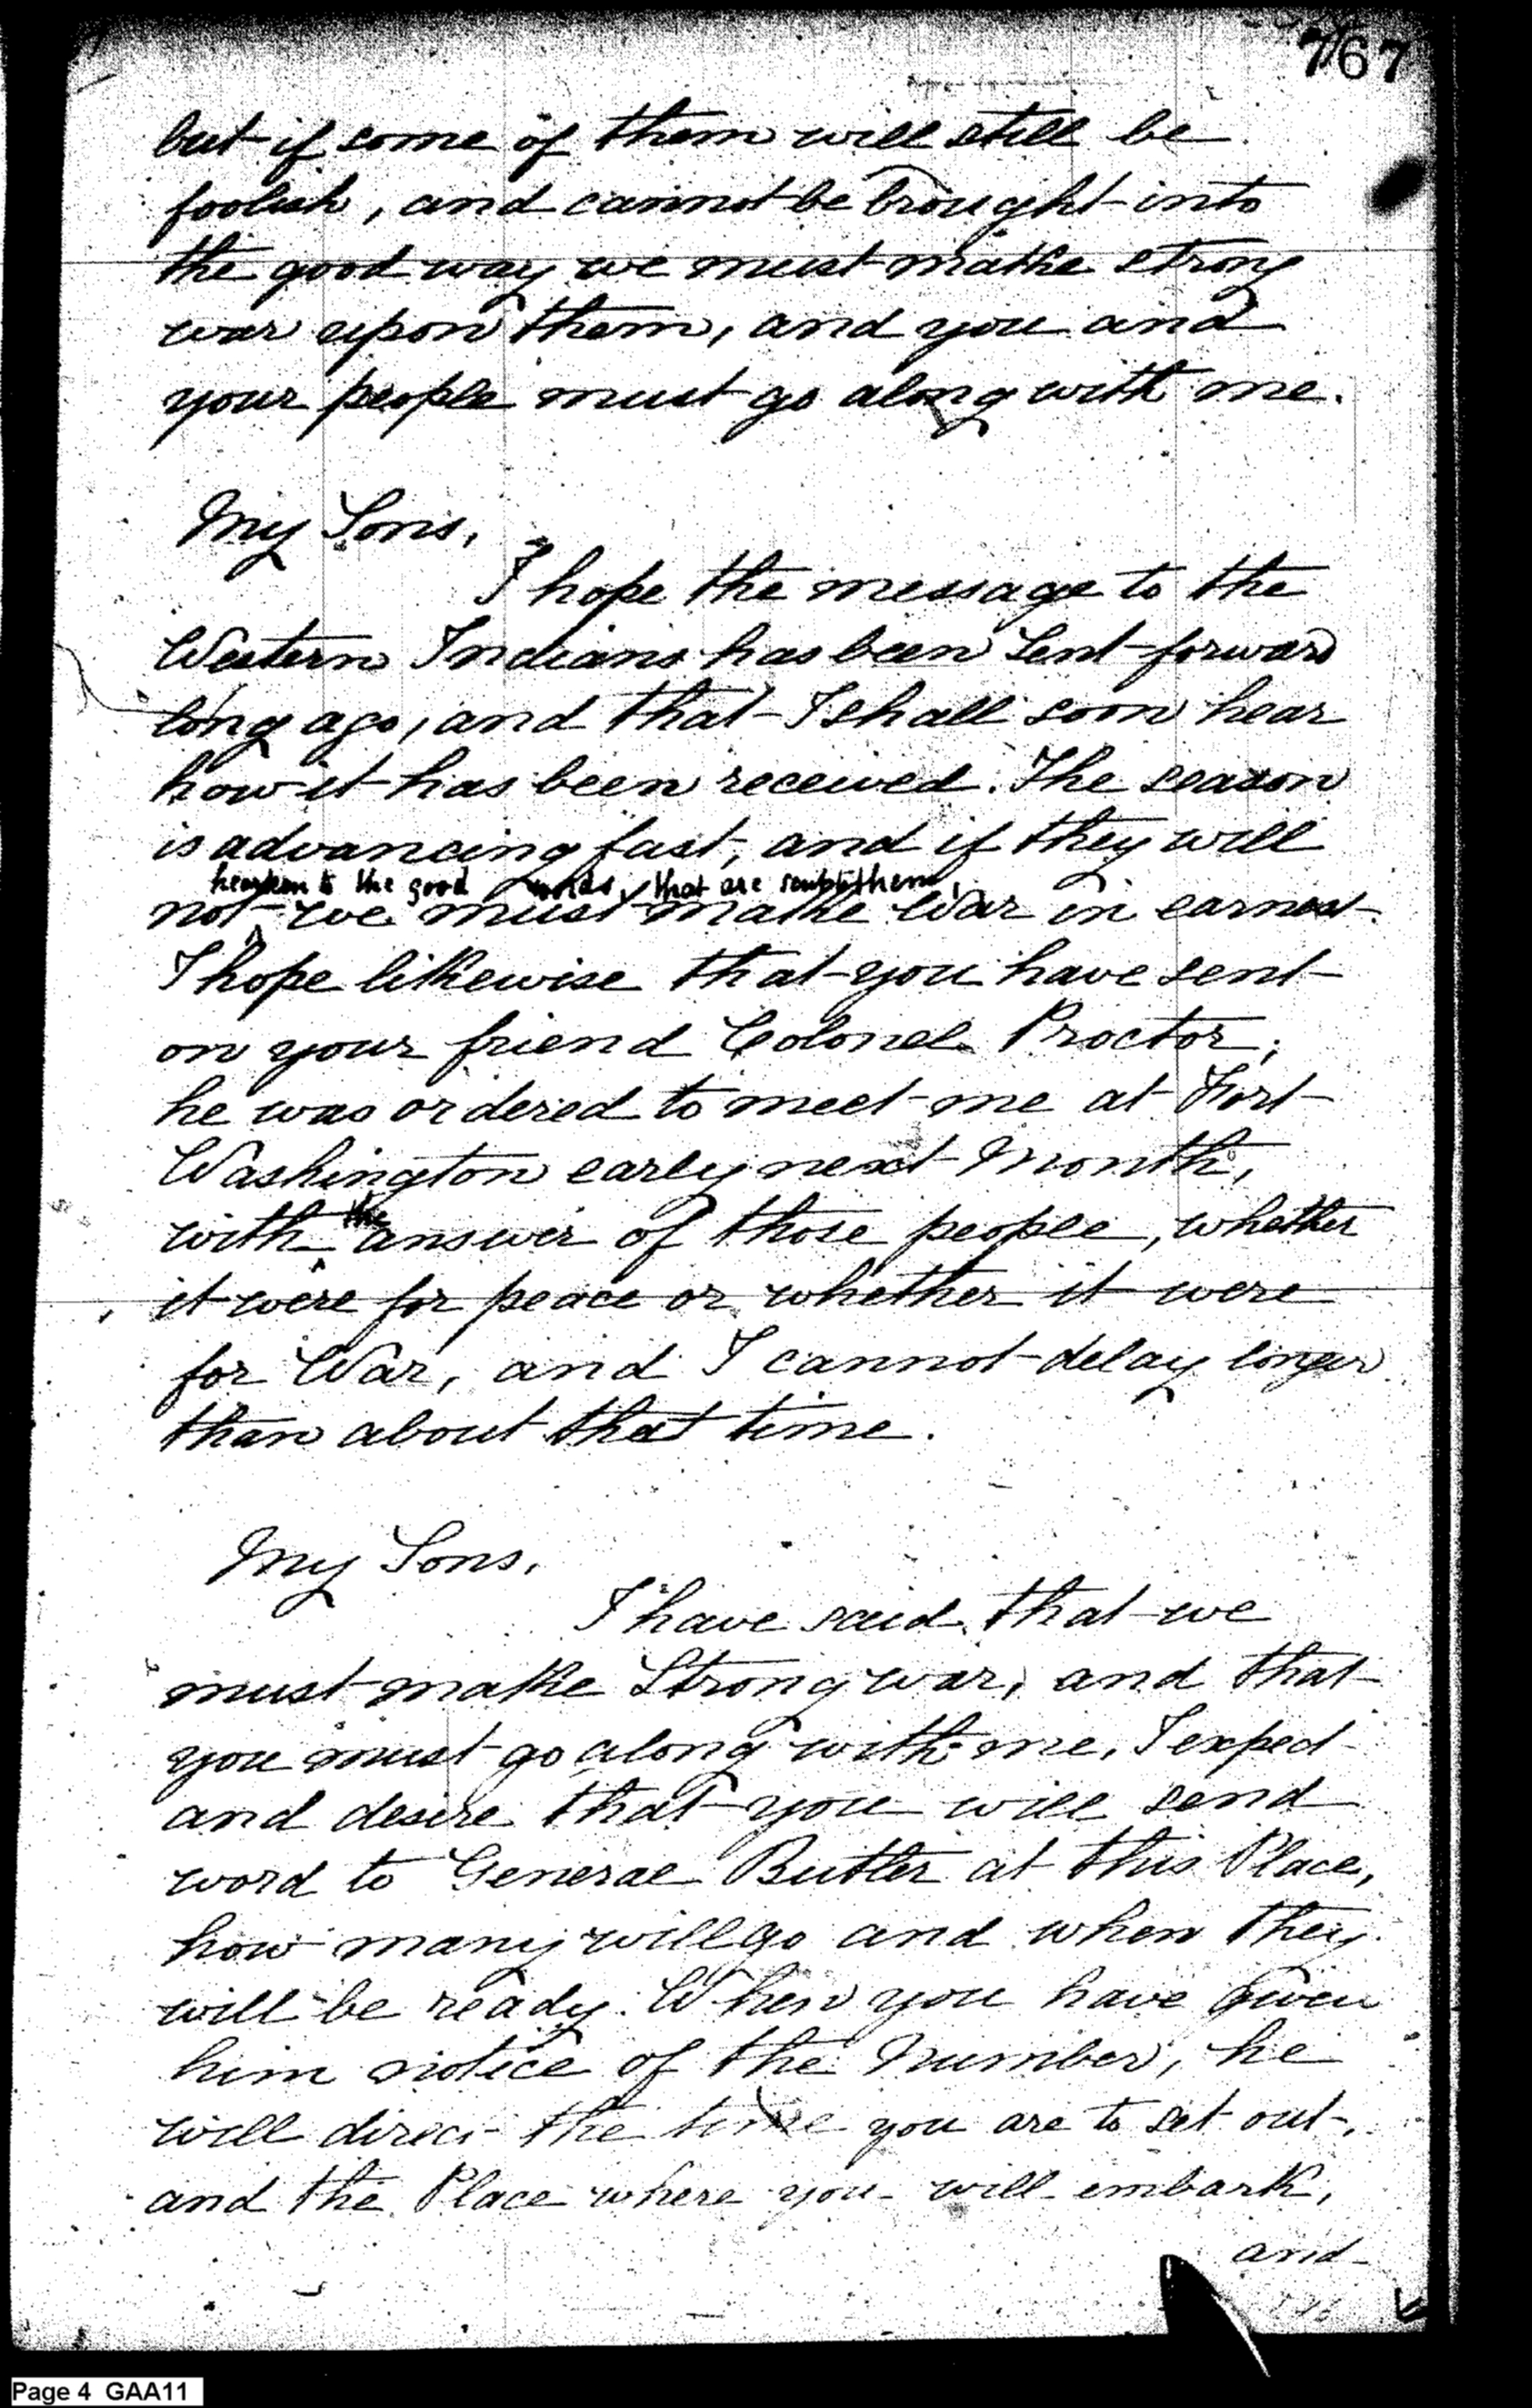 767
but if some of them will still be
foolish, and cannot be brought into
the good way we must make strong
war upon them, and you and
your people must go along with me.
My Sons,
I hope the message to the
Western Indians has been Sent forward
long ago, and that I shall soon hear
how it has been received. The season
is advancing fast, and if they will
hearken to the good words, that are sent to them,
not we must make War in earnest.
I hope likewise that you have sent
on your friend Colonel Proctor,
he was ordered to meet me at Fort
Washington early next Month,
the
with answer of those people, whether
it were for peace or whether it were
for War, and I cannot delay longer
than about that time.
My Sons,
I have said that we
must make Strong war, and that
you must go along with me. I expect
and desire that you will send
word to General Butler at this Place,
how many will go and when they
will be ready. When you have Given
him notice of the Number, he
will direct the time you are to set out,
and the Place where you will embark,
and
Page 4 GAA11